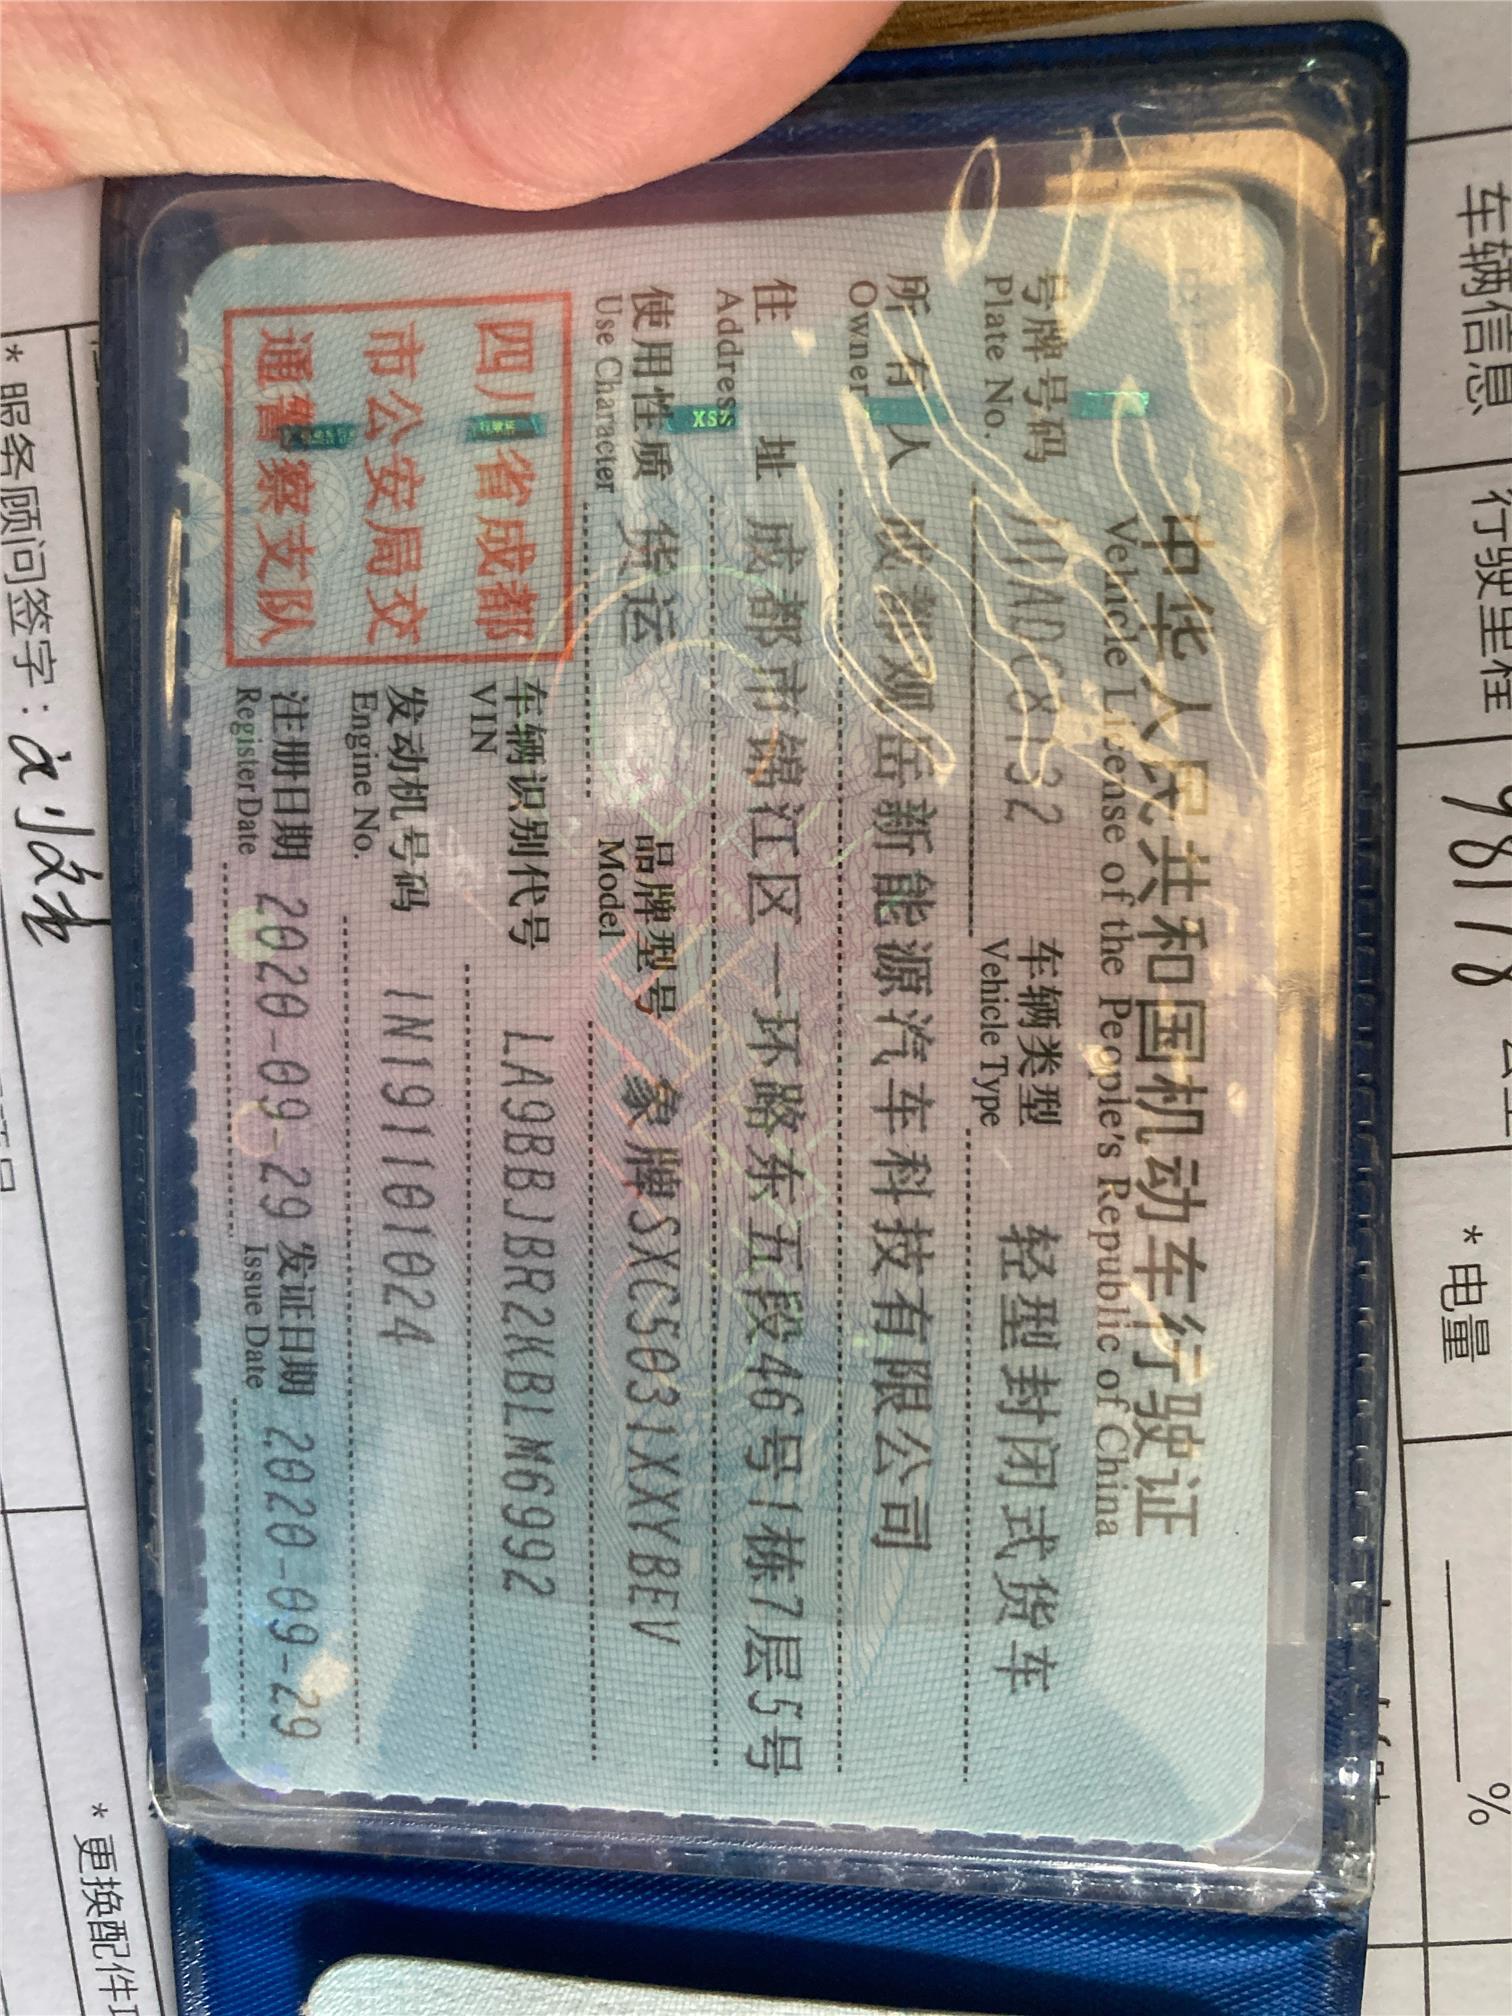 中华人民共和国机动车行驶证
Vehicle License of the People's Republic of China
号牌号码
Plate No.
车辆类型 轻型封闭式货车
Vehicle Type
所有人 成都观岳新能源汽车科技有限公司
Owner
住址 成都市锦江区一环路东五段46号1栋7层5号
Address
使用性质 货运
Use Character
品牌型号 象牌SXC5031XXYBEV
Model
四川省成都
市公安局交
通警察支队
车辆识别代号 LA9BBJBR2KBLM6992
VIN
发动机号码 1N191101024
Engine No.
注册日期 2020-09-29
Register Date
发证日期 2020-09-29
Issue Date
车辆信息
行驶里程 98178
*电量 %
*服务顾问签字:
*更换配件